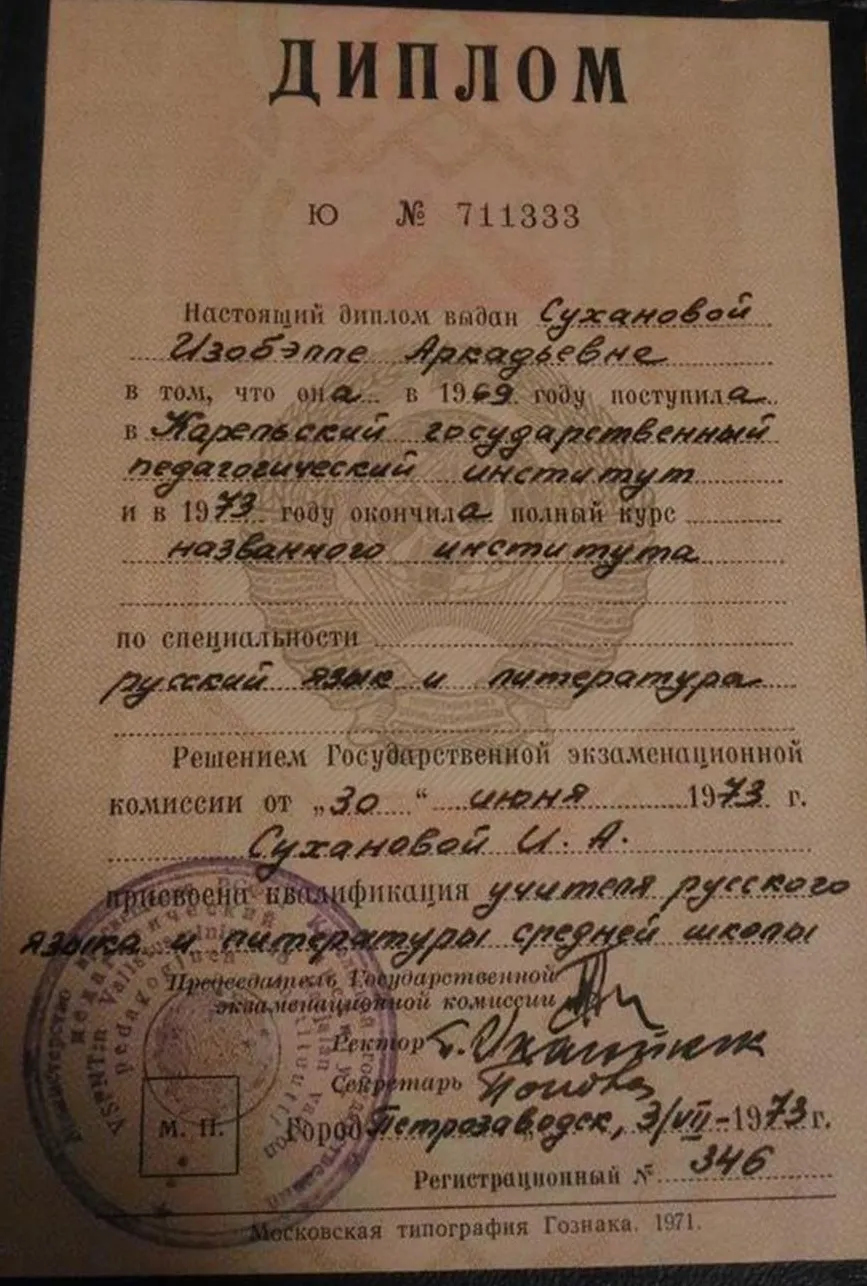 ДИПЛОМ
Ю № 711333
Настоящий диплом выдан Сухановой
Изобэлле Аркадьевне
в том, что она в 1969 году поступила
в Карельский государственный
педагогический институт
и в 1973 году окончила полный курс
названного института
по специальности
русский язык и литература
Решением Государственной экзаменационной
комиссии от „30“ июня 1973 г.
Сухановой И. А.
присвоена квалификация учителя русского
языка и литературы средней школы
Председатель Государственной
экзаменационной комиссии
Ректор
Секретарь
М. П.
Город Петрозаводск, 3/VII-1973 г.
Регистрационный № 346
Московская типография Гознака. 1971.